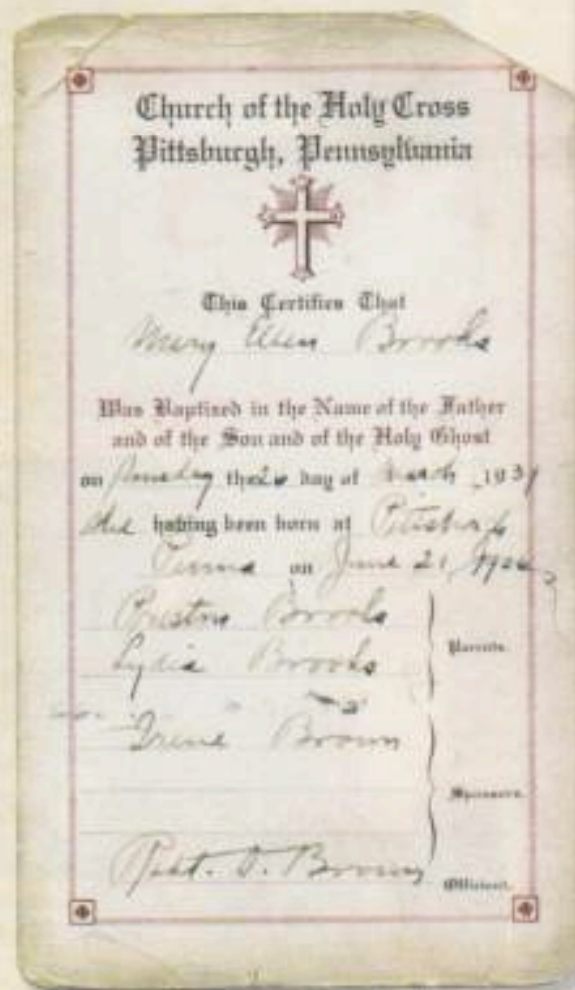 Church of the Holy Cross
Pittsburgh, Pennsylvania
This Certifies That
Mary Ellen Brooks
Was Baptized in the Name of the Father
and of the Son and of the Holy Ghost
on the 26 day of March, 193
She having been born at Pittsburgh
Penna on June 21,
Preston Brooks
Lydia Brooks
Parents.
Irene Brown
Sponsors.
Robt. Brown
Officiant.